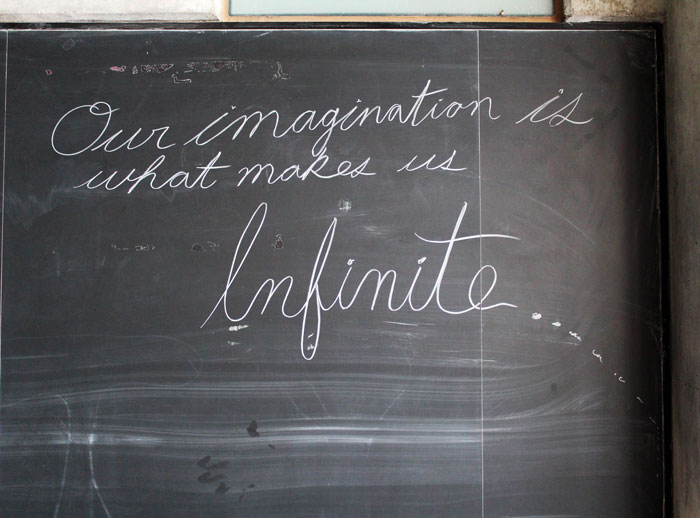 Our imagination is
what makes us
Infinite